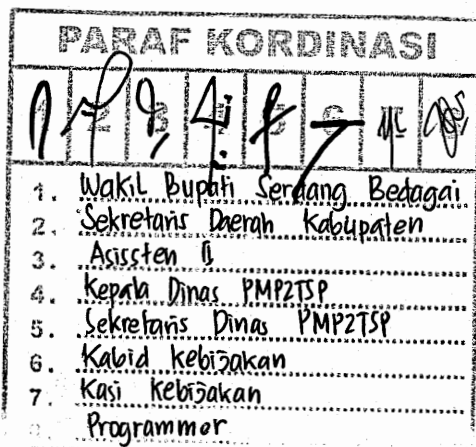 PARAF KORDINASI
1 2 3 4 5 6
1. Wakil Bupati Serdang Bedagai
2. Sekretaris Daerah Kabupaten
3. Asissten II
4. Kepala Dinas PMP2TSP
5. Sekretaris Dinas PMP2TSP
6. Kabid Kebijakan
7. Kasi Kebijakan
Programmer